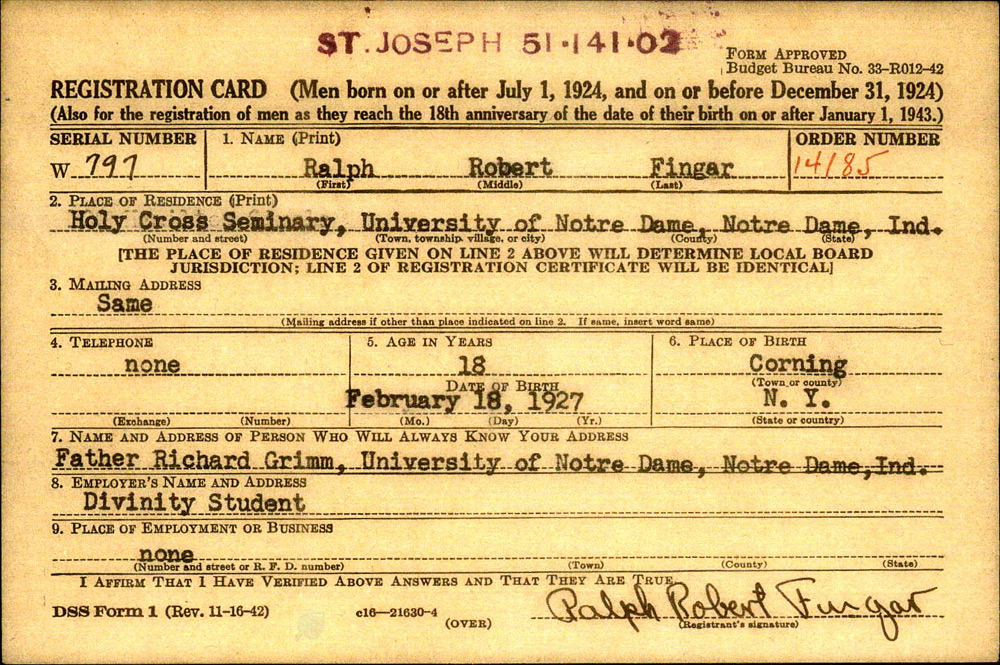 ST. JOSEPH 51·141·02
FORM APPROVED
Budget Bureau No. 33–R012-42
REGISTRATION CARD (Men born on or after July 1, 1924, and on or before December 31, 1924)
(Also for the registration of men as they reach the 18th anniversary of the date of their birth on or after January 1, 1943.)
SERIAL NUMBER 1. NAME (Print) ORDER NUMBER
W 797 Ralph Robert Fingar 14185
(First) (Middle) (Last)
2. PLACE OF RESIDENCE (Print)
Holy Cross Seminary, University of Notre Dame, Notre Dame, Ind.
(Number and street) (Town, township, village, or city) (County) (State)
[THE PLACE OF RESIDENCE GIVEN ON LINE 2 ABOVE WILL DETERMINE LOCAL BOARD
JURISDICTION; LINE 2 OF REGISTRATION CERTIFICATE WILL BE IDENTICAL]
3. MAILING ADDRESS
Same
(Mailing address if other than place indicated on line 2. If same, insert word same)
4. TELEPHONE 5. AGE IN YEARS 6. PLACE OF BIRTH
none 18 Corning
DATE OF BIRTH (Town or county)
February 18, 1927 N. Y.
(Exchange) (Number) (Mo.) (Day) (Yr.) (State or country)
7. NAME AND ADDRESS OF PERSON WHO WILL ALWAYS KNOW YOUR ADDRESS
Father Richard Grimm, University of Notre Dame, Notre Dame, Ind.
8. EMPLOYER'S NAME AND ADDRESS
Divinity Student
9. PLACE OF EMPLOYMENT OR BUSINESS
none
(Number and street or R. F. D. number) (Town) (County) (State)
I AFFIRM THAT I HAVE VERIFIED ABOVE ANSWERS AND THAT THEY ARE TRUE.
DSS Form 1 (Rev. 11-16-42) c16—21630-4 Ralph Robert Fingar
(OVER) (Registrant's signature)